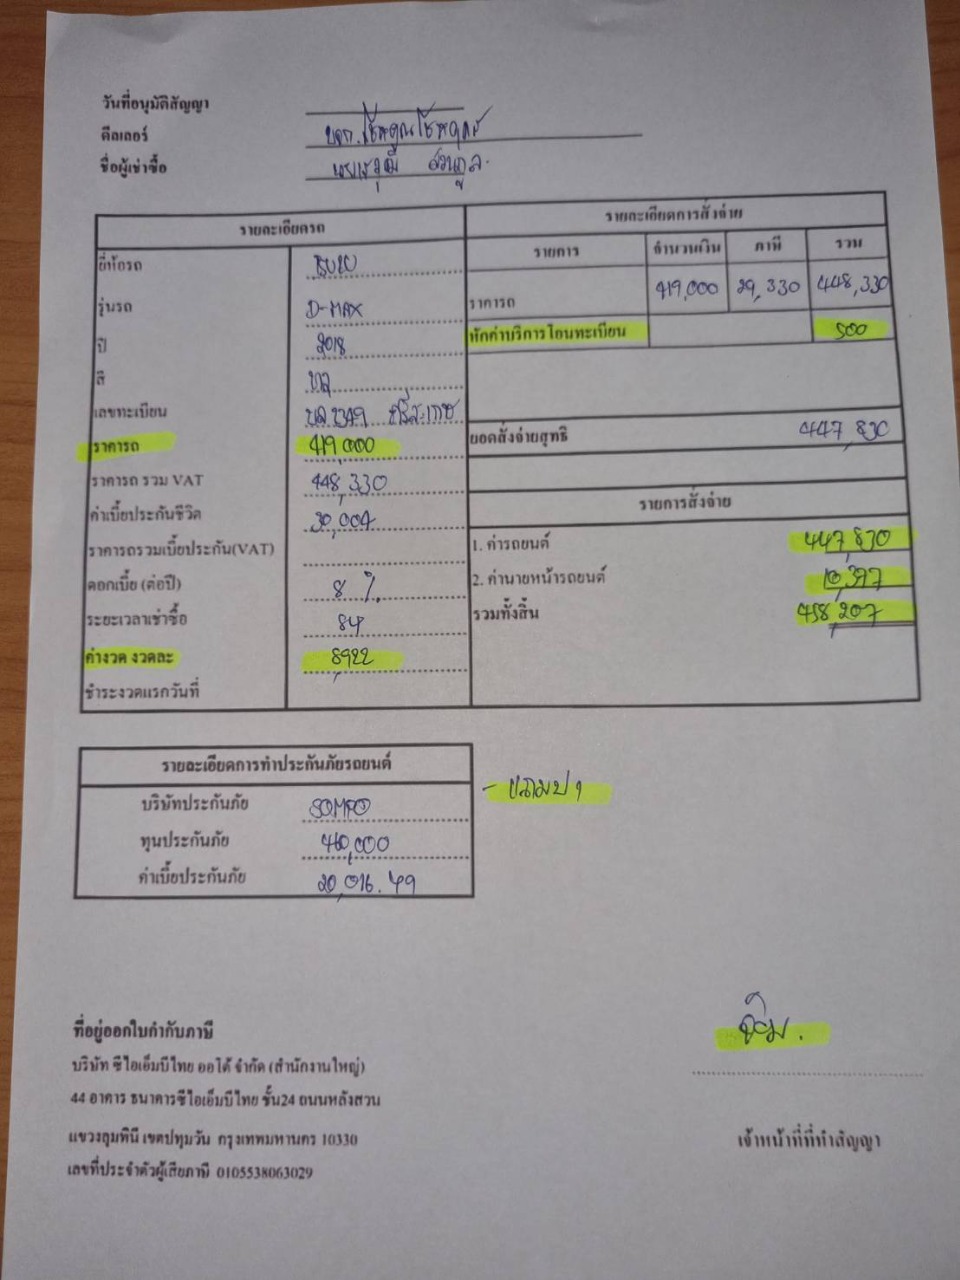 วันที่อนุมัติสัญญา
ดีลเลอร์ บจก.โชคคูณโชคฤดร
ชื่อผู้เช่าซื้อ
รายละเอียดรถ
ยี่ห้อรถ ISUZU
รุ่นรถ D-MAX
ปี 2018
สี เทา
เลขทะเบียน ศรีสะเกษ
ราคารถ 419,000
ราคารถ รวม VAT 448,330
ค่าเบี้ยประกันชีวิต 30,004
ราคารถรวมเบี้ยประกัน(VAT)
ดอกเบี้ย (ต่อปี) 8 %
ระยะเวลาเช่าซื้อ 84
ค่างวด งวดละ 8,922
ชำระงวดแรกวันที่
รายละเอียดการสั่งจ่าย
รายการ จำนวนเงิน ภาษี รวม
ราคารถ 419,000 29,330 448,330
หักค่าบริการโอนทะเบียน 500
ยอดสั่งจ่ายสุทธิ 447,830
รายการสั่งจ่าย
1. ค่ารถยนต์ 447,830
2. ค่านายหน้ารถยนต์ 10,377
รวมทั้งสิ้น 458,207
รายละเอียดการทำประกันภัยรถยนต์
บริษัทประกันภัย SOMPO
ทุนประกันภัย 460,000
ค่าเบี้ยประกันภัย 20,016.49
- แถมป 1
ที่อยู่ออกใบกำกับภาษี
บริษัท ซีไอเอ็มบีไทย ออโต้ จำกัด (สำนักงานใหญ่)
44 อาคาร ธนาคารซีไอเอ็มบีไทย ชั้น24 ถนนหลังสวน
แขวงลุมพินี เขตปทุมวัน กรุงเทพมหานคร 10330
เลขที่ประจำตัวผู้เสียภาษี 0105538063029
เจ้าหน้าที่ที่ทำสัญญา